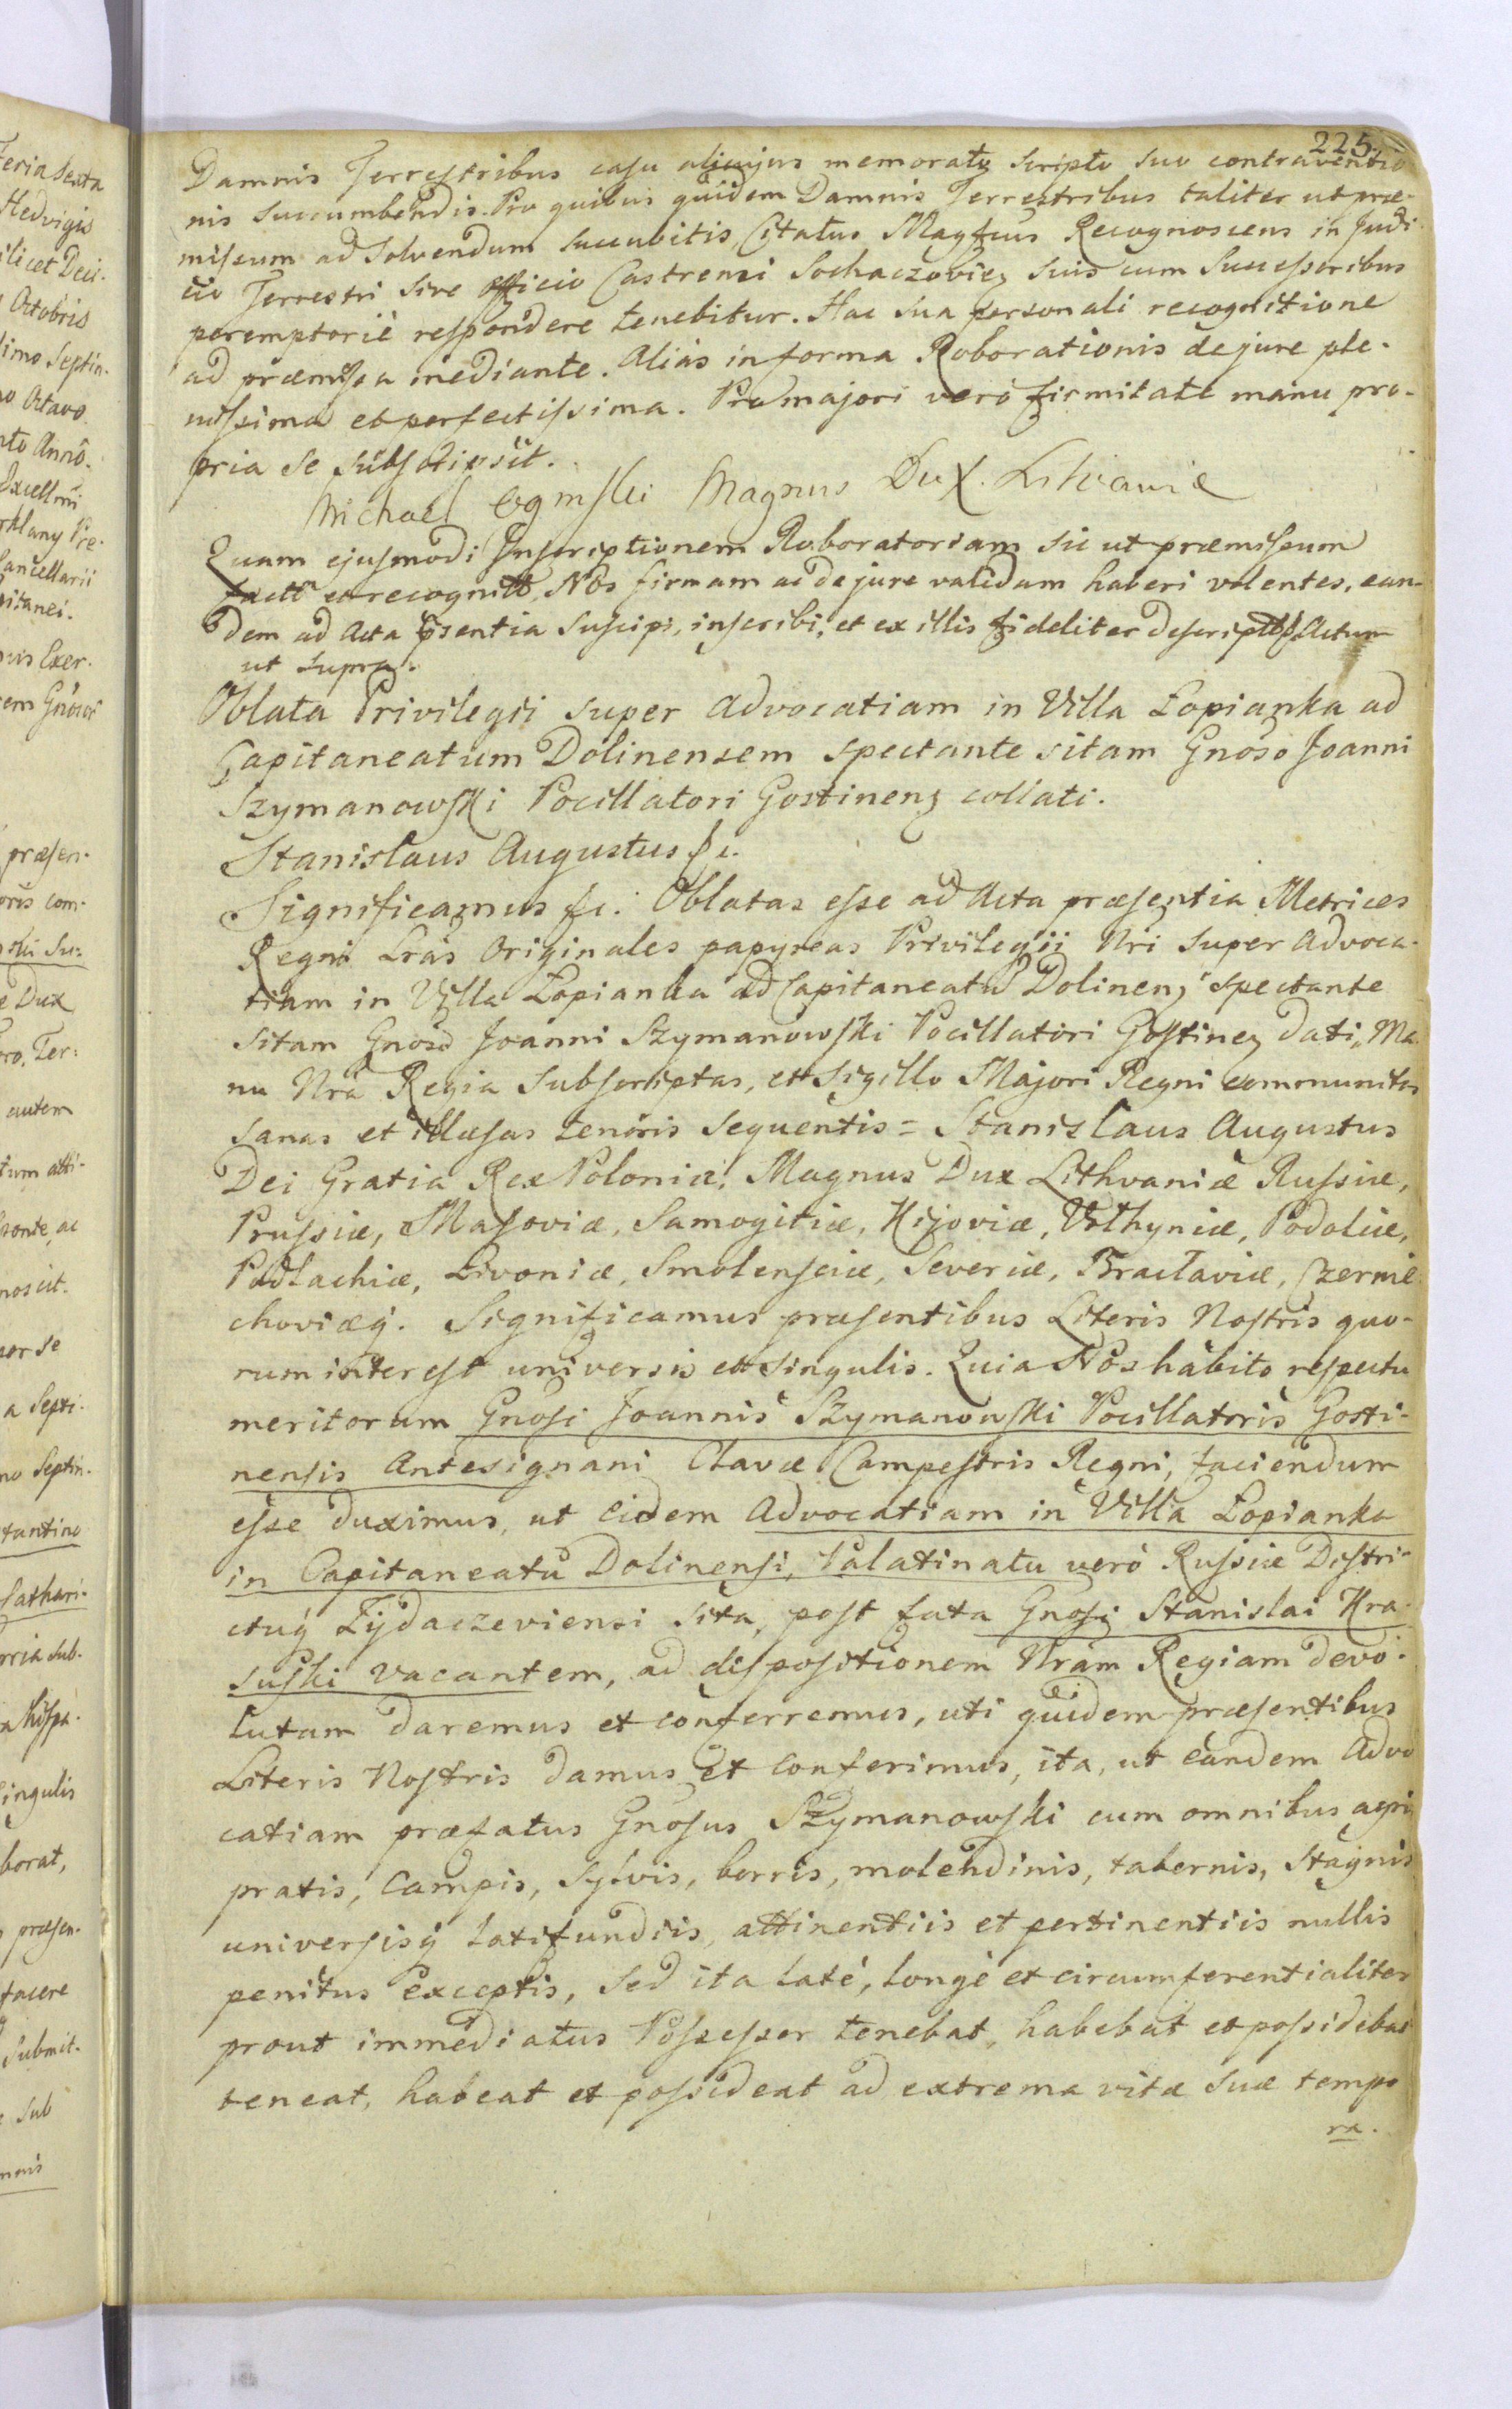 225.
Damnis Terrestribus casu alicujus memoratz scripto suo contraventio
nis succumbendis. Pro quibus quidem Damnis Terrestribus taliter ut præ-
missum ad solvendum succubitis, Citatus Magfcus Recognoscens in Judi
cio Terrestri sive officio Castrensi Sochaczovien̄ suis cum Successoribus
peremptoriè respondere tenebitur. Hac sua personali recognitione
ad præmissa mediante. Aliàs in forma Roborationis de jure ple-
nissima et perfectissima. Pro majori verò firmitate manu pro-
pria se subscripsit.
Michael Magnus Dux. Litvaniæ
Quam ejusmodi Inscriptionem Roboratoriam sic ut præmissum
et Nos firmam ac de jure validam haberi volentes, ean-
dem ad Acta p̄sentia suscipi, inscribi, et ex illis fideliter Actum
ut supra.
Oblata Privilegii super Advocatiam in Villa Łopianka ad
Capitaneatum Dolinensem spectante sitam Gnōso Joanni
Szymanowski Pocillatori Gostinenz collati.
Stanislaus Augustus &c.
Significamus &c. Oblatas esse ad Acta præsentia Metrices
Regni Lrās Originales papyreas Privilegii Nri super Advoca-
tiam in Villa Łopianka ad Capitaneatū Dolinenz spectante
sitam Gnōso Joanni Szymanowski Pocillatori Gostinez dati, Ma-
nu Nrā Regia subscriptas, et sigillo Majori Regni communitas
sanas et illæsas tenoris sequentis = Stanislaus Augustus
Dei Gratia Rex Poloniæ, Magnus Dux Lithvaniæ Russiæ,
Prussiæ, Masoviæ, Samogitiæ, Kijoviæ, Volhyniæ, Podoliæ,
Podlachiæ, Livoniæ, Smolensciæ, Severiæ, Bracłaviæ, Czernie
choviæq́. Significamus præsentibus Literis Nostris quo-
rum interest universis et singulis. Quia Nos habito respectu
meritorum Gnosi Joannis Szymanowski Pocillatoris Gosti-
nensis Antesignani Clavæ Campestris Regni, faciendum
esse duximus, ut eidem Advocatiam in Villa Łopianka
in Capitaneatu Dolinensi, Palatinatu verò Russiæ Distri-
ctuq́ Zydaczeviensi sita, post fata Gnosi Stanislai Kra-
suski vacantem, ad dispositionem Nrām Regiam devo-
lutam daremus et conferremus, uti quidem præsentibus
Literis Nostris damus et conferimus, ita, ut eandem Advo
catiam præfatus Gnosus Szymanowski cum omnibus agris
pratis, campis, sylvis, borris, molendinis, tabernis, stagnis
universisq́ latifundiis, attinentiis et pertinentiis nullis
penitus exceptis, sed ita latè, longè et circumferentialiter
prout immediatus Possessor tenebat, habebat et possidebat
teneat, habeat et possideat ad extrema vitæ suæ tempo
ra.